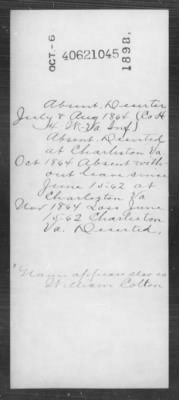 OCT - 6
40621045
1893.
Absent. Deserter
July & Aug 1864 (Co H
4 W. Va Inf)
Absent. Deserted
at Charleston Va.
Oct 1864 Absent with-
out leave since
June 15-62 at
Charleston Va
Nov 1864 Loss June
15-62 Charleston
Va. Deserted.
Name appears also as
William Colton